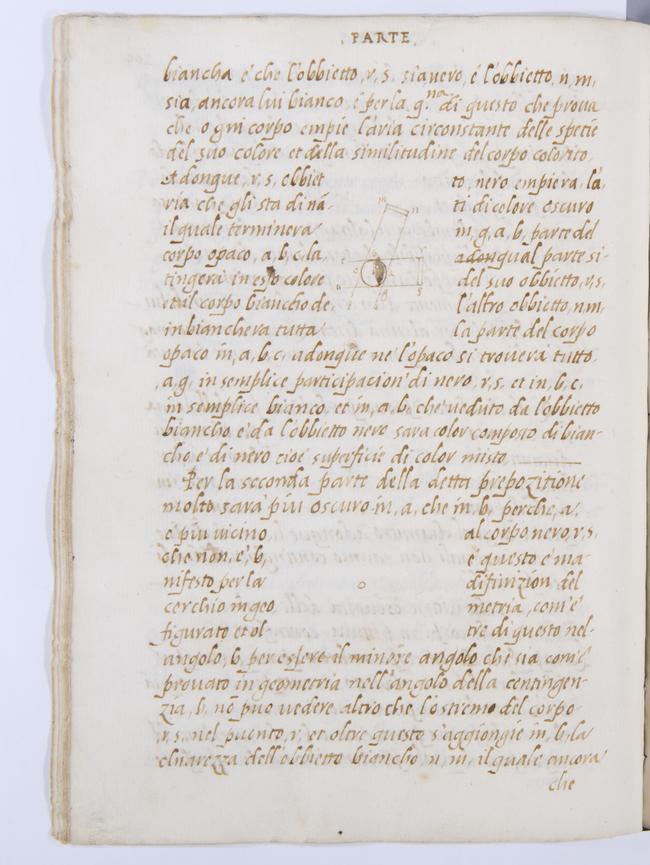 . PARTE .
biancha é che l'obbietto, r, s. sia nero, é l'obbietto, n, m,
sia, ancora lui bianco, é per la 9.na di questo che proua
che ogni corpo empie l'aria circonstante delle spetie
del suo colore et della similitudine del corpo colorito.
Adonque, r, s, obbiet to, nero empiera, la
ria che gli sta dina ti di colore oscuro
il quale terminera in, g, a, b, parte del
corpo opaco, a, b, c, la adonqual parte si
tingera in esso colore del suo obbietto, r, s,
et il corpo biancho de l'altro obbietto, n, m,
inbianchera tutta la parte del corpo
opaco in, a, b, c, adonque ne l'opaco si trouera tutto,
, a, g, in semplice participacion' di nero, r, s, et in, b, c,
in semplice bianco, et in, a, b, che ueduto da l'obbietto
biancho, e da l'obbietto nero sara color composto di bian-
cho e di nero cioé superficie di color misto
Per la seconda parte della detta prepozitione
molto sara più oscuro in, a, che in, b, perche, a,
e piu uicino al corpo nero, r, s,
che non, é, b, é questo e ma-
nifesto per la difinizion del
cerchio in geo, metria, com'é
figurato et ol tre di questo nel-
angolo, b, per essere il minore angolo che sia com'é
prouato in geometria nell'angolo della contingen-
zia, b, no può uedere altro che l'ostremo del corpo
, r, s, nel puonto, r, et oltre questo s'aggiongie in, b, la
chiarezza dell'obbietto biancho, n, m, il quale ancora
che